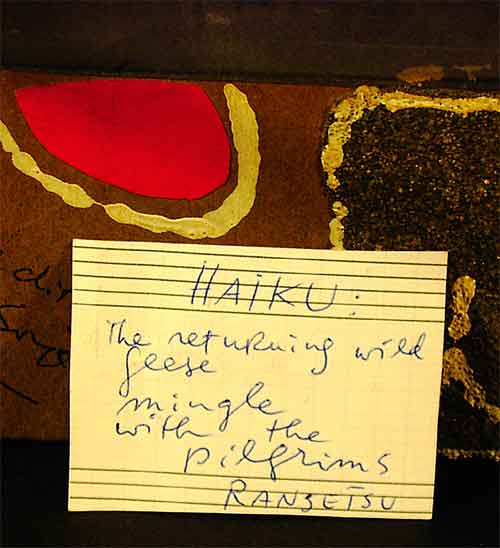 HAIKU:
The returning wild
geese
mingle
with the
pilgrims
RANSETSU